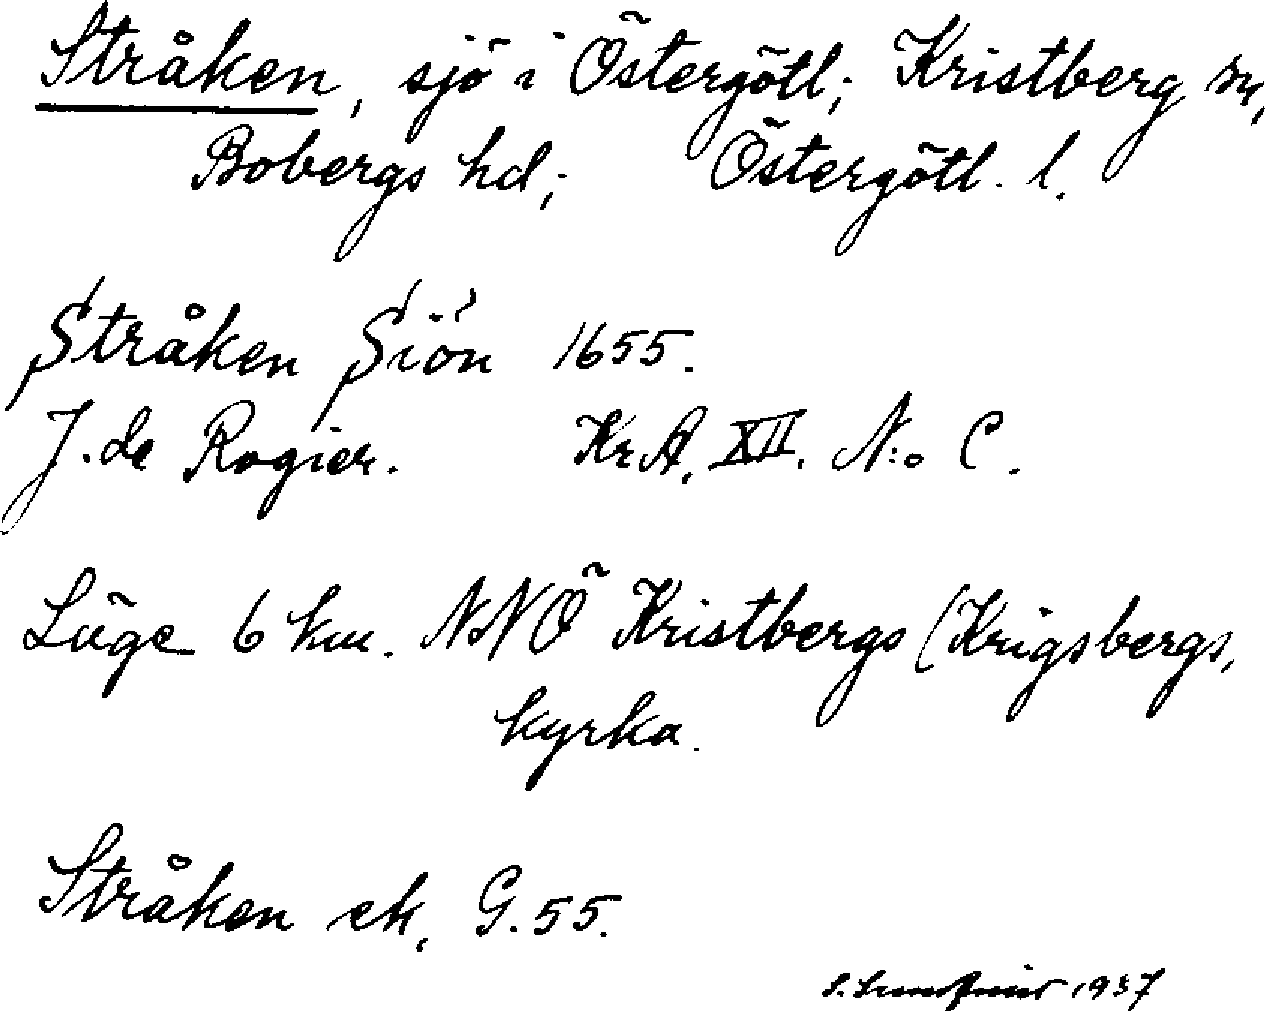 Stråken, sjö i Östergötl; Kristberg sn,
Bobergs hd; Östergötl. l.
Stråken Siön 1655.
J. de Rogier. KrA. XII. N:o C.
Läge 6 km. NNÖ Kristbergs (Krigsbergs,
kyrka.
Stråken ek, G. 55.
1937